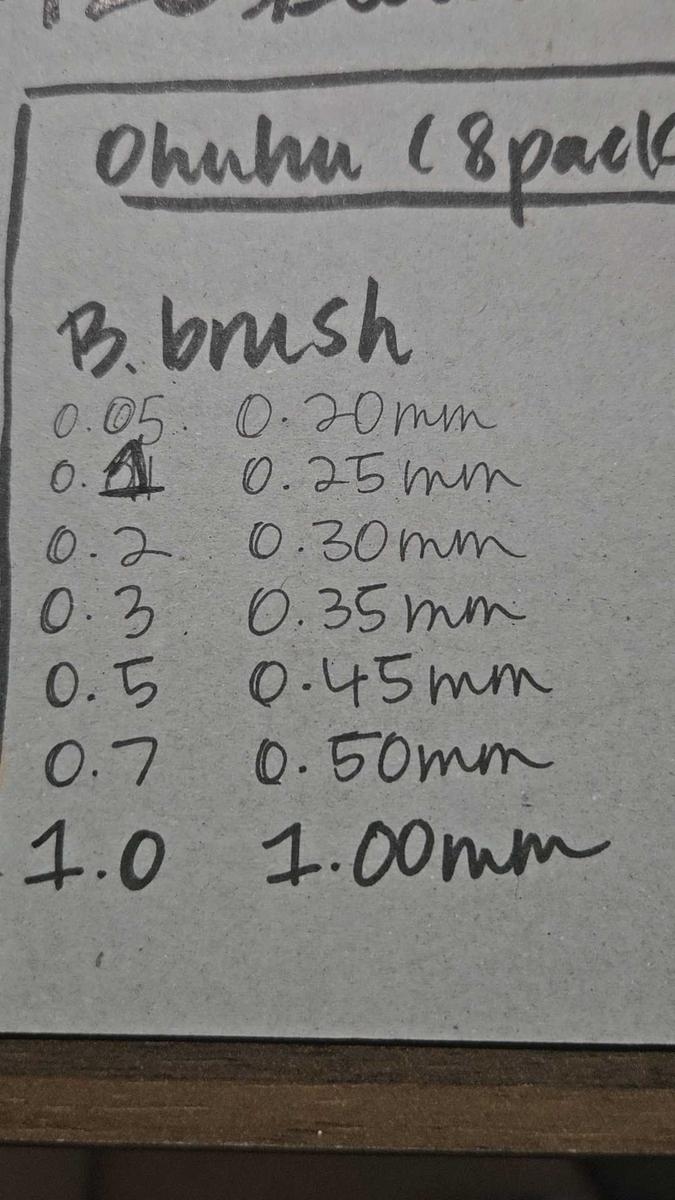 Ohuhu (8pack
B. brush
0.05 0.20mm
0.1 0.25mm
0.2 0.30mm
0.3 0.35mm
0.5 0.45mm
0.7 0.50mm
1.0 1.00mm